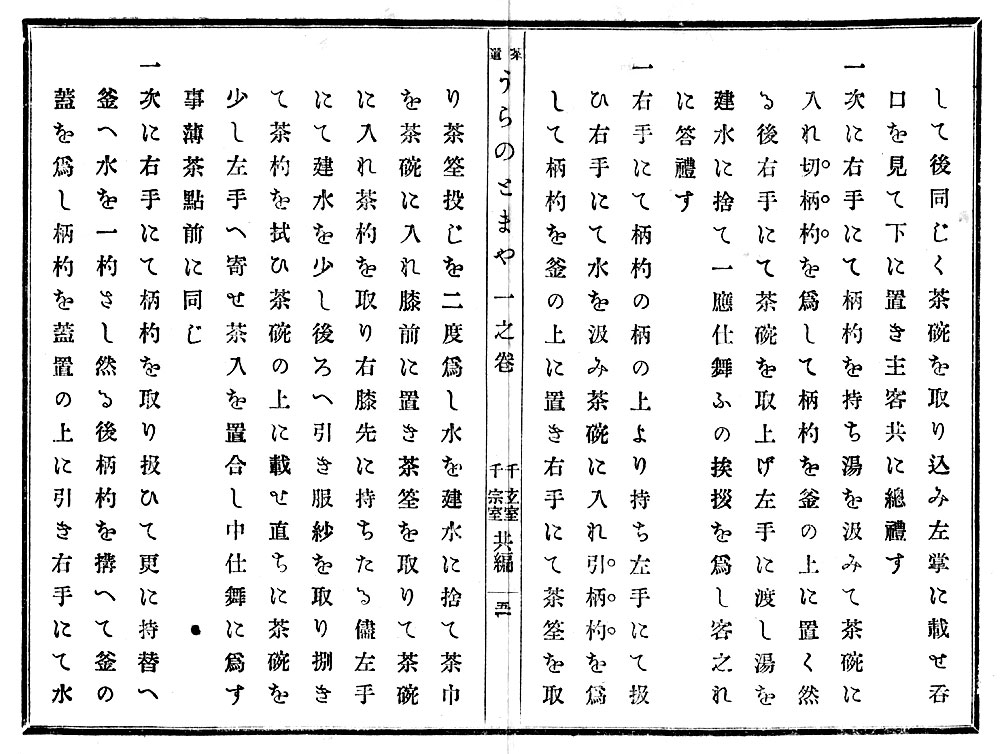 して後同じく茶碗を取り込み左掌に載せ呑
口を見て下に置き主客共に總禮す
一次に右手にて柄杓を持ち湯を汲みて茶碗に
入れ切柄杓を爲して柄杓を釜の上に置く然
る後右手にて茶碗を取上げ左手に渡し湯を
建水に捨て一應仕舞ふの挨拶を爲し客之れ
に答禮す
一右手にて柄杓の柄の上より持ち左手にて扱
ひ右手にて水を汲み茶碗に入れ引柄杓を爲
して柄杓を釜の上に置き右手にて茶筌を取
茶道
うらのとまや一之卷
千玄室
千宗室
共編
五一
り茶筌投じを二度爲し水を建水に捨て茶巾
を茶碗に入れ膝前に置き茶筌を取りて茶碗
に入れ茶杓を取り右膝先に持ちたる儘左手
にて建水を少し後ろへ引き服紗を取り捌き
て茶杓を拭ひ茶碗の上に載せ直ちに茶碗を
少し左手へ寄せ茶入を置合し中仕舞に爲す
事薄茶點前に同じ
一次に右手にて柄杓を取り扱ひて更に持替へ
釜へ水を一杓さし然る後柄杓を搆へて釜の
蓋を爲し柄杓を蓋置の上に引き右手にて水